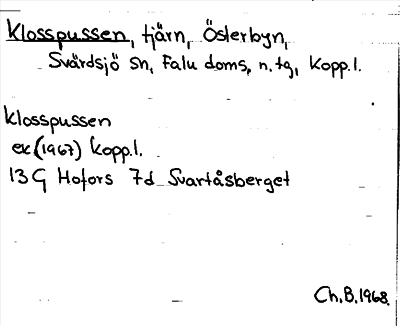 Klosspussen, tjärn, Österbyn,
Svärdsjö sn, Falu doms, n. tg, Kopp.l.
Klosspussen
ek (1967) Kopp.l.
13 G Hofors 7d Svartåsberget
Ch.B.1968.